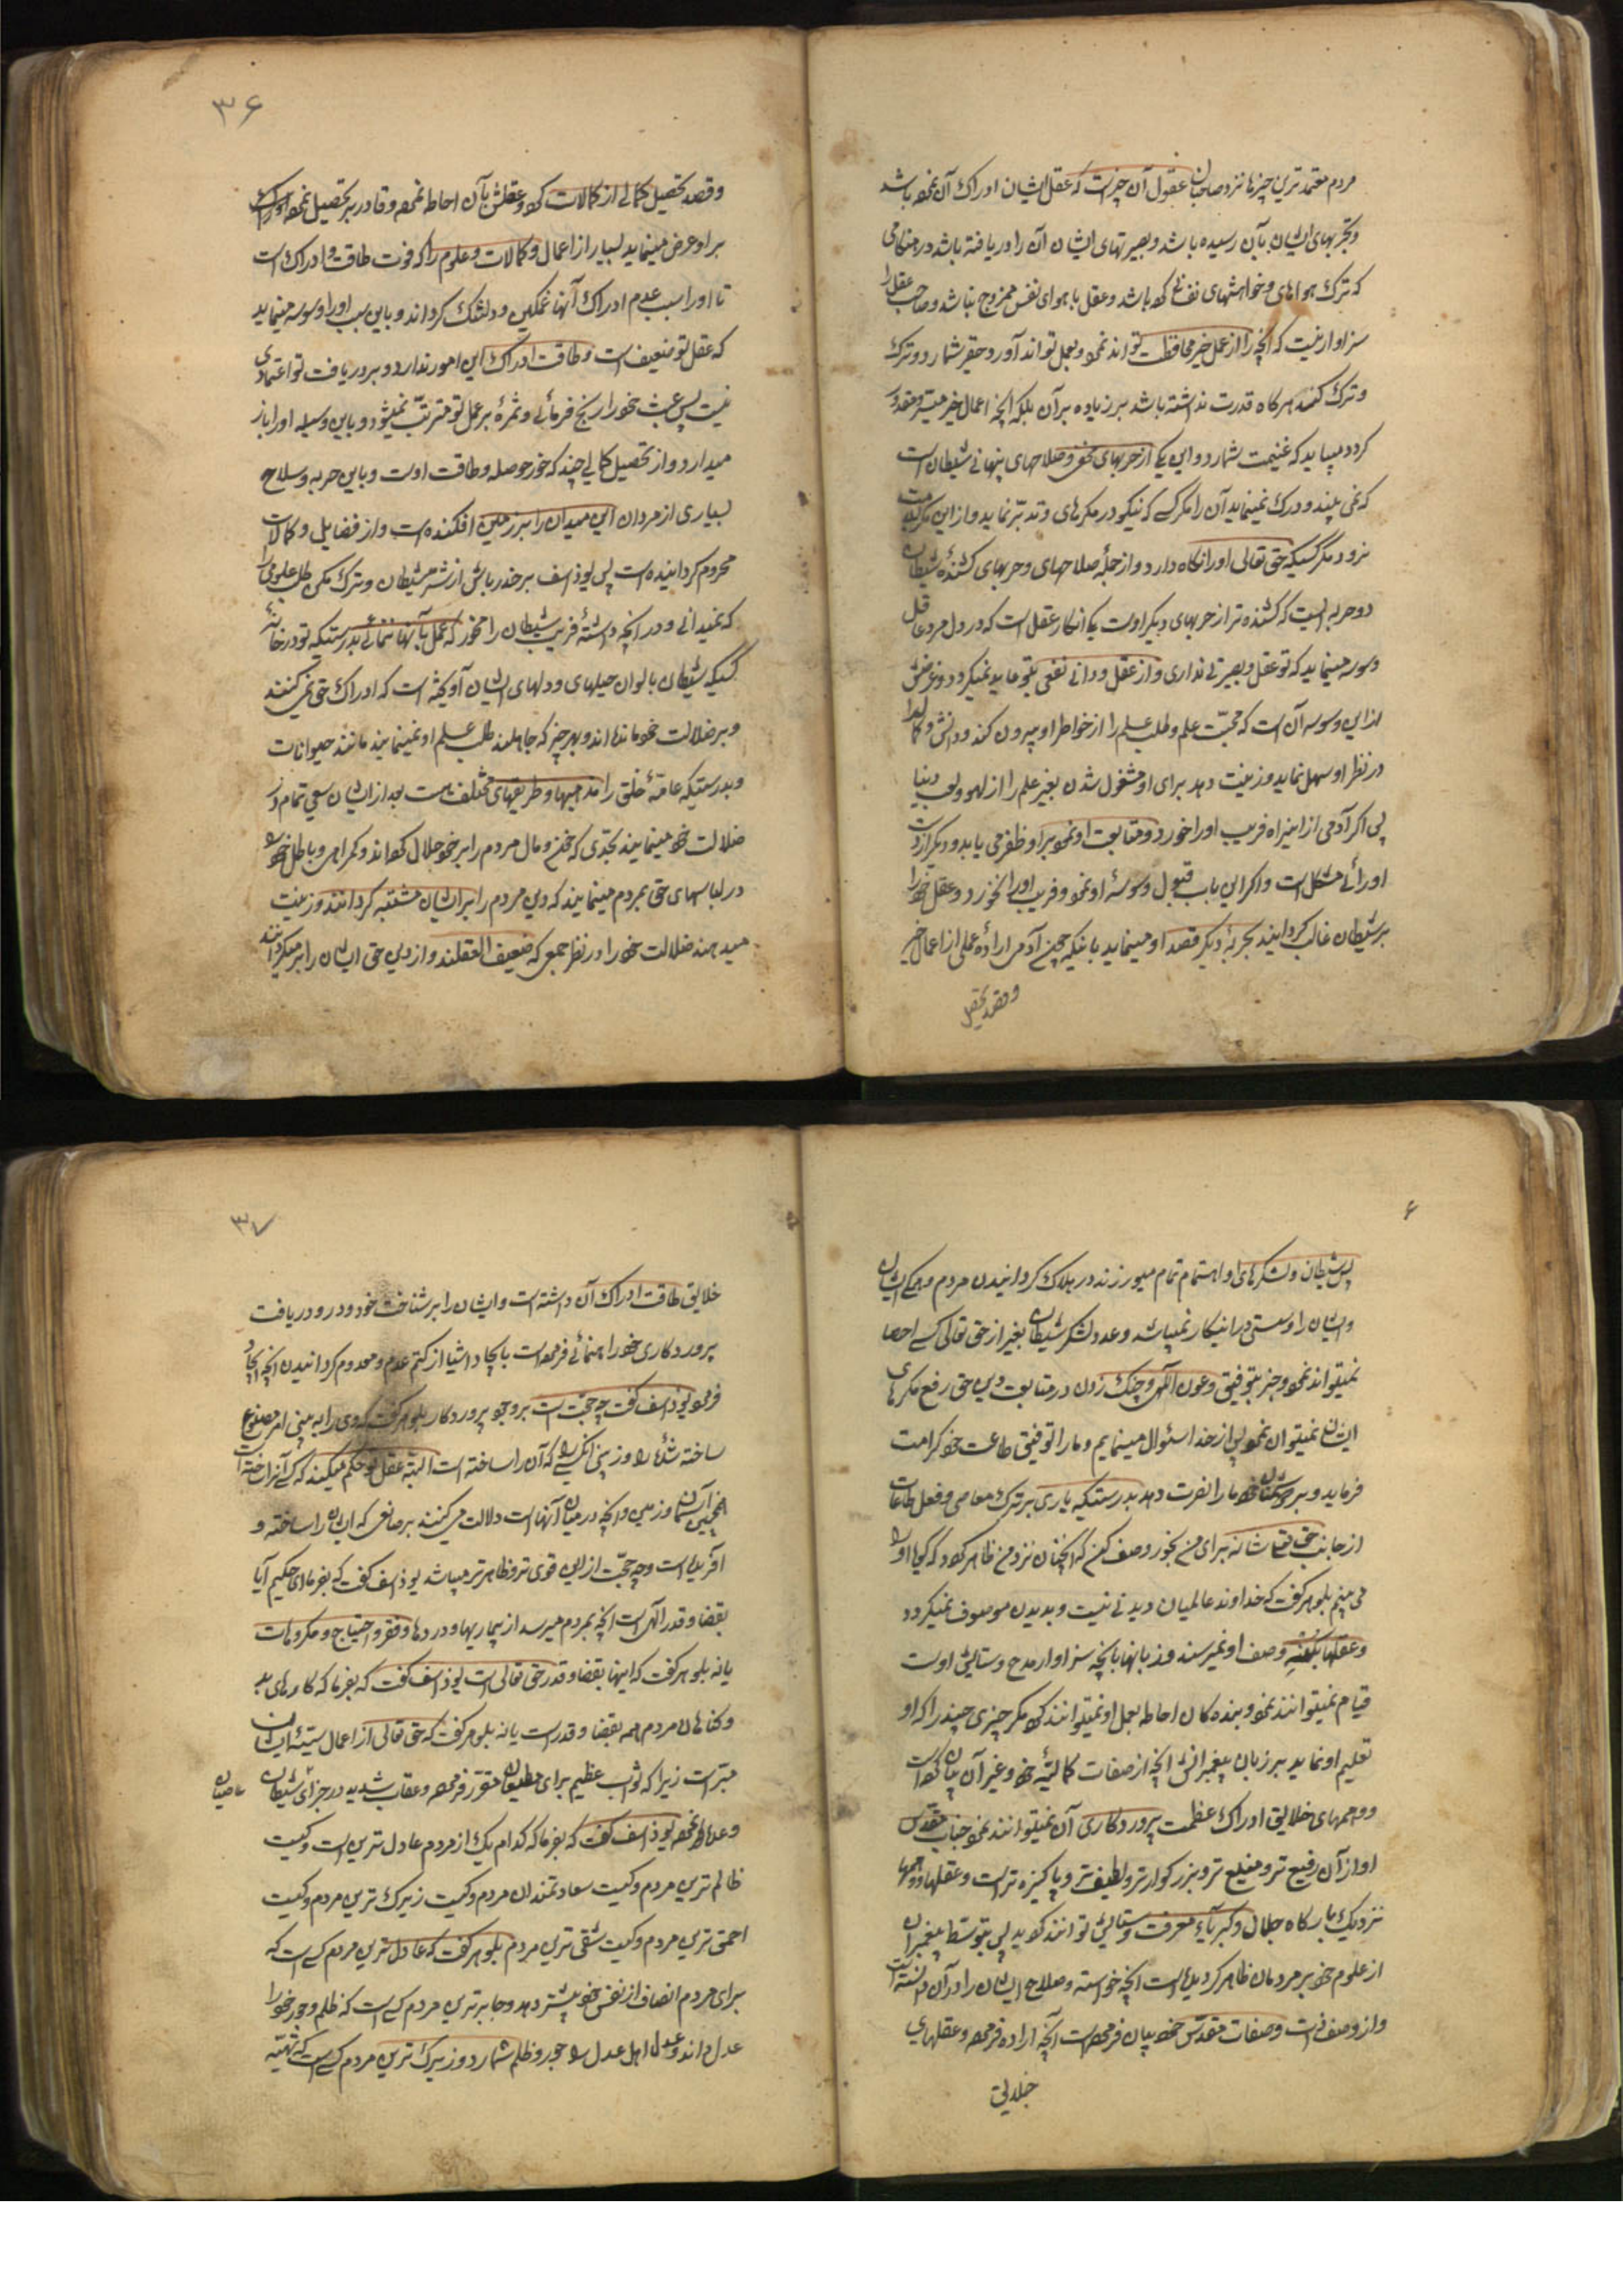 مردم معتمدترین چیزها نزد صاحبان عقول آن چیزاست که عقل ایشان ادراک آن نموده باشد
و تجربهای ایشان بآن رسیده باشد و بصیرتهای ایشان آن را دریافته باشد در هنگامی
که ترک هواهای و خواهشهای نفسانی کرده باشد و عقل با هوای نفس ممزوج نباشد و صاحب عقل را
سزاوار نیست که آنچه را از عمل خیر محافظت تواند نمود و بعمل تواند آورد حقیر شمارد و ترک
و ترک کند هرگاه قدرت نداشته باشد بر زیاده بر آن بلکه آنچه اعمال خیر میسر و مقدور
گردد میباید که غنیمت شمارد و این یکی از حربهای مخفی و صلاحهای پنهانی شیطان است
که نمی بیند و درک نمینماید آن را مگر کسی که نیکو در مکرهای او تدبّر نماید و از این مکر سلامت
نرود مگر کسیکه حق تعالی او را نگاه دارد و از جملهٔ صلاحهای و حربهای کشندهٔ شیطان
دو حربه ایست که کشنده تر از حربهای دیگر اوست یکی انکار عقل است که در دل مرد عاقل
وسوسه مینماید که تو عقل و بصیرتی نداری و از عقل و دانائی نفعی بتو عاید نمیگردد و غرضش
از این وسوسه آن است که محبّت علم و طلب علم را از خاطر او بیرون کند و دانش و کمال را
در نظر او سهل نماید و زینت دهد برای او مشغول شدن بغیر علم را از لهو و لعب دنیا
پس اگر آدمی از این راه فریب او را خورد و متابعت او نمود بر او ظفر می یابد و دیگر از دست
او رائی مشکل است و اگر این باب قبول وسوسهٔ او ننمود و فریب او را نخورد و عقل خود را
بر شیطان غالب گردانید بحربهٔ دیگر قصد او مینماید باینکه چون آدمی ارادهٔ عملی از اعمال خیر
و قصد تحصیل
۳۶
و قصد تحصیل کمالی از کمالات کرد و عقلش بآن احاطه نموده و قادر بر تحصیل نموده او را
بر او عرض مینماید بسیار از اعمال و کمالات و علوم را که فوت طاقت و ادراک است
تا او را سبب عدم ادراک آنها غمگین و دلتنگ گرداند و باین سبب او را وسوسه مینماید
که عقل تو ضعیف است و طاقت ادراک این امور ندارد و بر دریافت تو اعتمادی
نیست پس عبث خود را رنج فرمائی و ثمرهٔ بر عمل تو مترتّب نمیشود و باین وسیله او را باز
میدارد و از تحصیل کمالی چند که خور حوصله و طاقت اوست و باین حربه و سلاح
بسیاری از مردان این میدان را بر زمین افکنده است و از فضایل و کمالات
محروم گردانیده است پس یوذاسف بر حذر باش از شر شیطان و ترک مکن طلب علومی را
که نمیدانی و در آنچه دانستهٔ فریب شیطان را مخور که عمل بآنها ننمائی بدرستیکه تو در خانهٔ
کسیکه شیطان بالوان حیلهای و دلهای ایشان آویخته است که ادراک حق نمی کنند
و بر ضلالت خود مانده اند و بهر چیز که جاهلند طلب علم او نمینمایند مانند حیوانات
و بدرستیکه عامهٔ خلق را مذهبها و طریقهای مختلف هست بعد از ایشان سعی تمام در
ضلالت خود مینمایند بحدّی که خون و مال مردم را بر خود حلال کرده اند و گمراهی و باطل خود را
در لباسهای حق بمردم مینمایند که دین مردم را بر ایشان مشتبه گردانند و زینت
میدهند ضلالت خود را در نظر جمعی که ضعیف العقلند و از دین حق ایشان را بر میگردانند
۶
پس شیطان و لشکرهای او اهتمام تمام میورزند در هلاک گردانیدن مردم و همگی ایشان
و ایشان را و سستی در اینکار نمیباشد و عدد لشکر شیطان بغیر از حق تعالی کسی احصا
نمیتواند نمود و جز بتوفیق و عون الهی و چنگ زدن در متابعت دین حق رفع مکرهای
ایشان نمیتوان نمود پس از خدا سئوال مینمایم و ما را توفیق طاعت خود کرامت
فرماید و بر دشمنان خود ما را نصرت دهد بدرستیکه یاری بر ترک معاصی و فعل طاعات
از جانب حق تعالی شانه برای من بخور وصف کن که انچنان نزد من ظاهر گردد که گویا او را
می بینم بلوهر گفت که خداوند عالمیان دیدنی نیست و بدیدن موصوف نمیگردد
و عقلها بکنه وصف او نمیرسند و زبانها بآنچه سزاوار مدح و ستایش اوست
قیام نمیتوانند نمود و بنده گان احاطه بعلم او نمیتوانند کرد مگر چیزی چند را که او
تعلیم او نماید بر زبان پیغمبرانش انچه از صفات کمالیهٔ خود و غیر آن بیان کرده است
و وهمهای خلایق ادراک عظمت پروردگاری آن نمیتوانند نمود جناب مقدّس
او از آن رفیع تر و منیع تر و بزرگوارتر و لطیف تر و پاکیزه تر است و عقلها و وهمها
نزدیک بارگاه جلال و کبریاء معرفت و ستایش توانند گردید پس بتوسط پیغمبران
از علوم خود بر مردمان ظاهر گردیده است آنچه خواسته و صلاح ایشان را در آن دانسته است
و از وصف ذات و صفات مقدّس خود بیان فرموده است آنچه اراده فرموده و عقلهای
خلایق
۳۷
خلایق طاقت ادراک آن داشته است و ایشان را بر شناخت خود و درو دریافت
پروردگاری خود راهنمائی فرموده است بایجاد اشیا از کتم عدم و معدوم گردانیدن آنچه ایجاد
فرموده یوذاسف گفت چه حجّت است بر وجود پروردگار بلوهر گفت که وی را به بینی امر مصنوع
ساخته شدهٔ را و نه بینی انکسی را که آن را ساخته است البته عقل تو حکم میکند که کسی آنرا ساخته است
همچنین آسمان و زمین و آنچه در میان آنهاست دلالت می کنند بر صانعی که ایشان را ساخته و
آفریده است و چه حجّت از این قوی تر و ظاهرتر میباشد یوذاسف گفت که بفرما ای حکیم آیا
بقضا و قدر الهی است آنچه بمردم میرسد از بیماریها و دردها و فقر و احتیاج و مکروهات
یا نه بلوهر گفت که اینها بقضا و قدر حق تعالی است یوذاسف گفت که بفرما که کارهای بد
و گناهان مردم همه بقضا و قدرست یا نه بلوهر گفت که حق تعالی از اعمال سیئهٔ ایشان
مبّرّاست زیرا که ثواب عظیم برای مطیعان مقرّر فرموده و عقاب شدید در جزای شیطان عاصیان
و وعدها نموده یوذاسف گفت که بفرما که کدام یک از مردم عادل ترین است و کیست
ظالم ترین مردم و کیست سعادتمندان مردم و کیست زیرک ترین مردم و کیست
احمق ترین مردم و کیست شقی ترین مردم بلوهر گفت که عادل ترین مردم کسی است که
برای مردم انصاف از نفس خود بیشتر دهد و جابرترین مردم کسی است که ظلم و جور خود را
عدل داند و عدل اهل عدل را جور و ظلم شمارد و زیرک ترین مردم کسی است که تهیّه